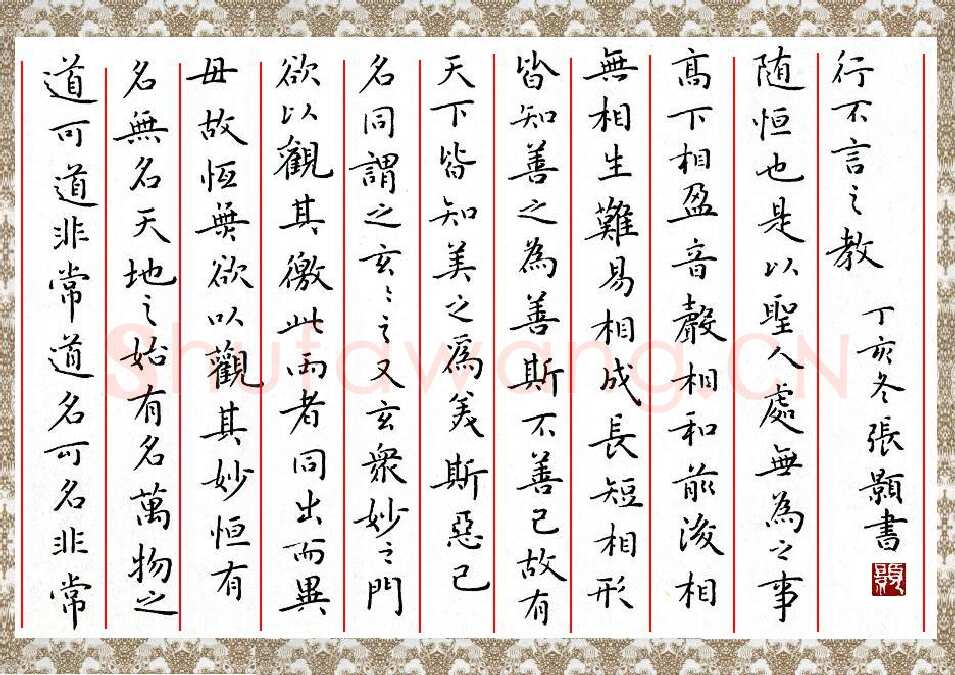 道可道非常道名可名非常
名無名天地之始有名萬物之
母故恆無欲以觀其妙恒有
欲以觀其徼此兩者同出而異
名同謂之玄〻之又玄衆妙之門
天下皆知美之爲美斯惡已
皆知善之為善斯不善已故有
無相生難易相成長短相形
高下相盈音聲相和前後相
随恒也是以聖人處無為之事
行不言之教
丁亥冬張顥書
Shufawang.CN